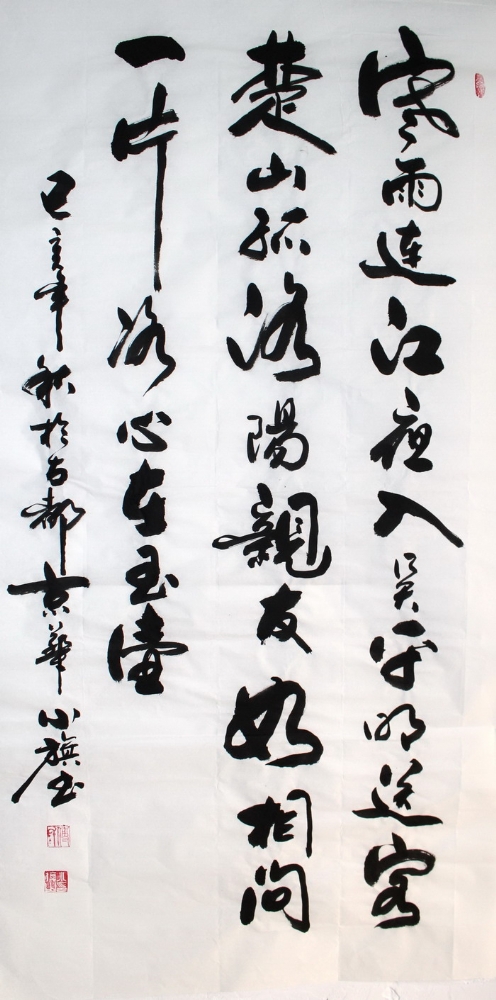 寒雨連江夜入吳平明送客
楚山孤洛陽親友如相问
一片冰心在玉壺
己亥年秋於古都京華小旗书